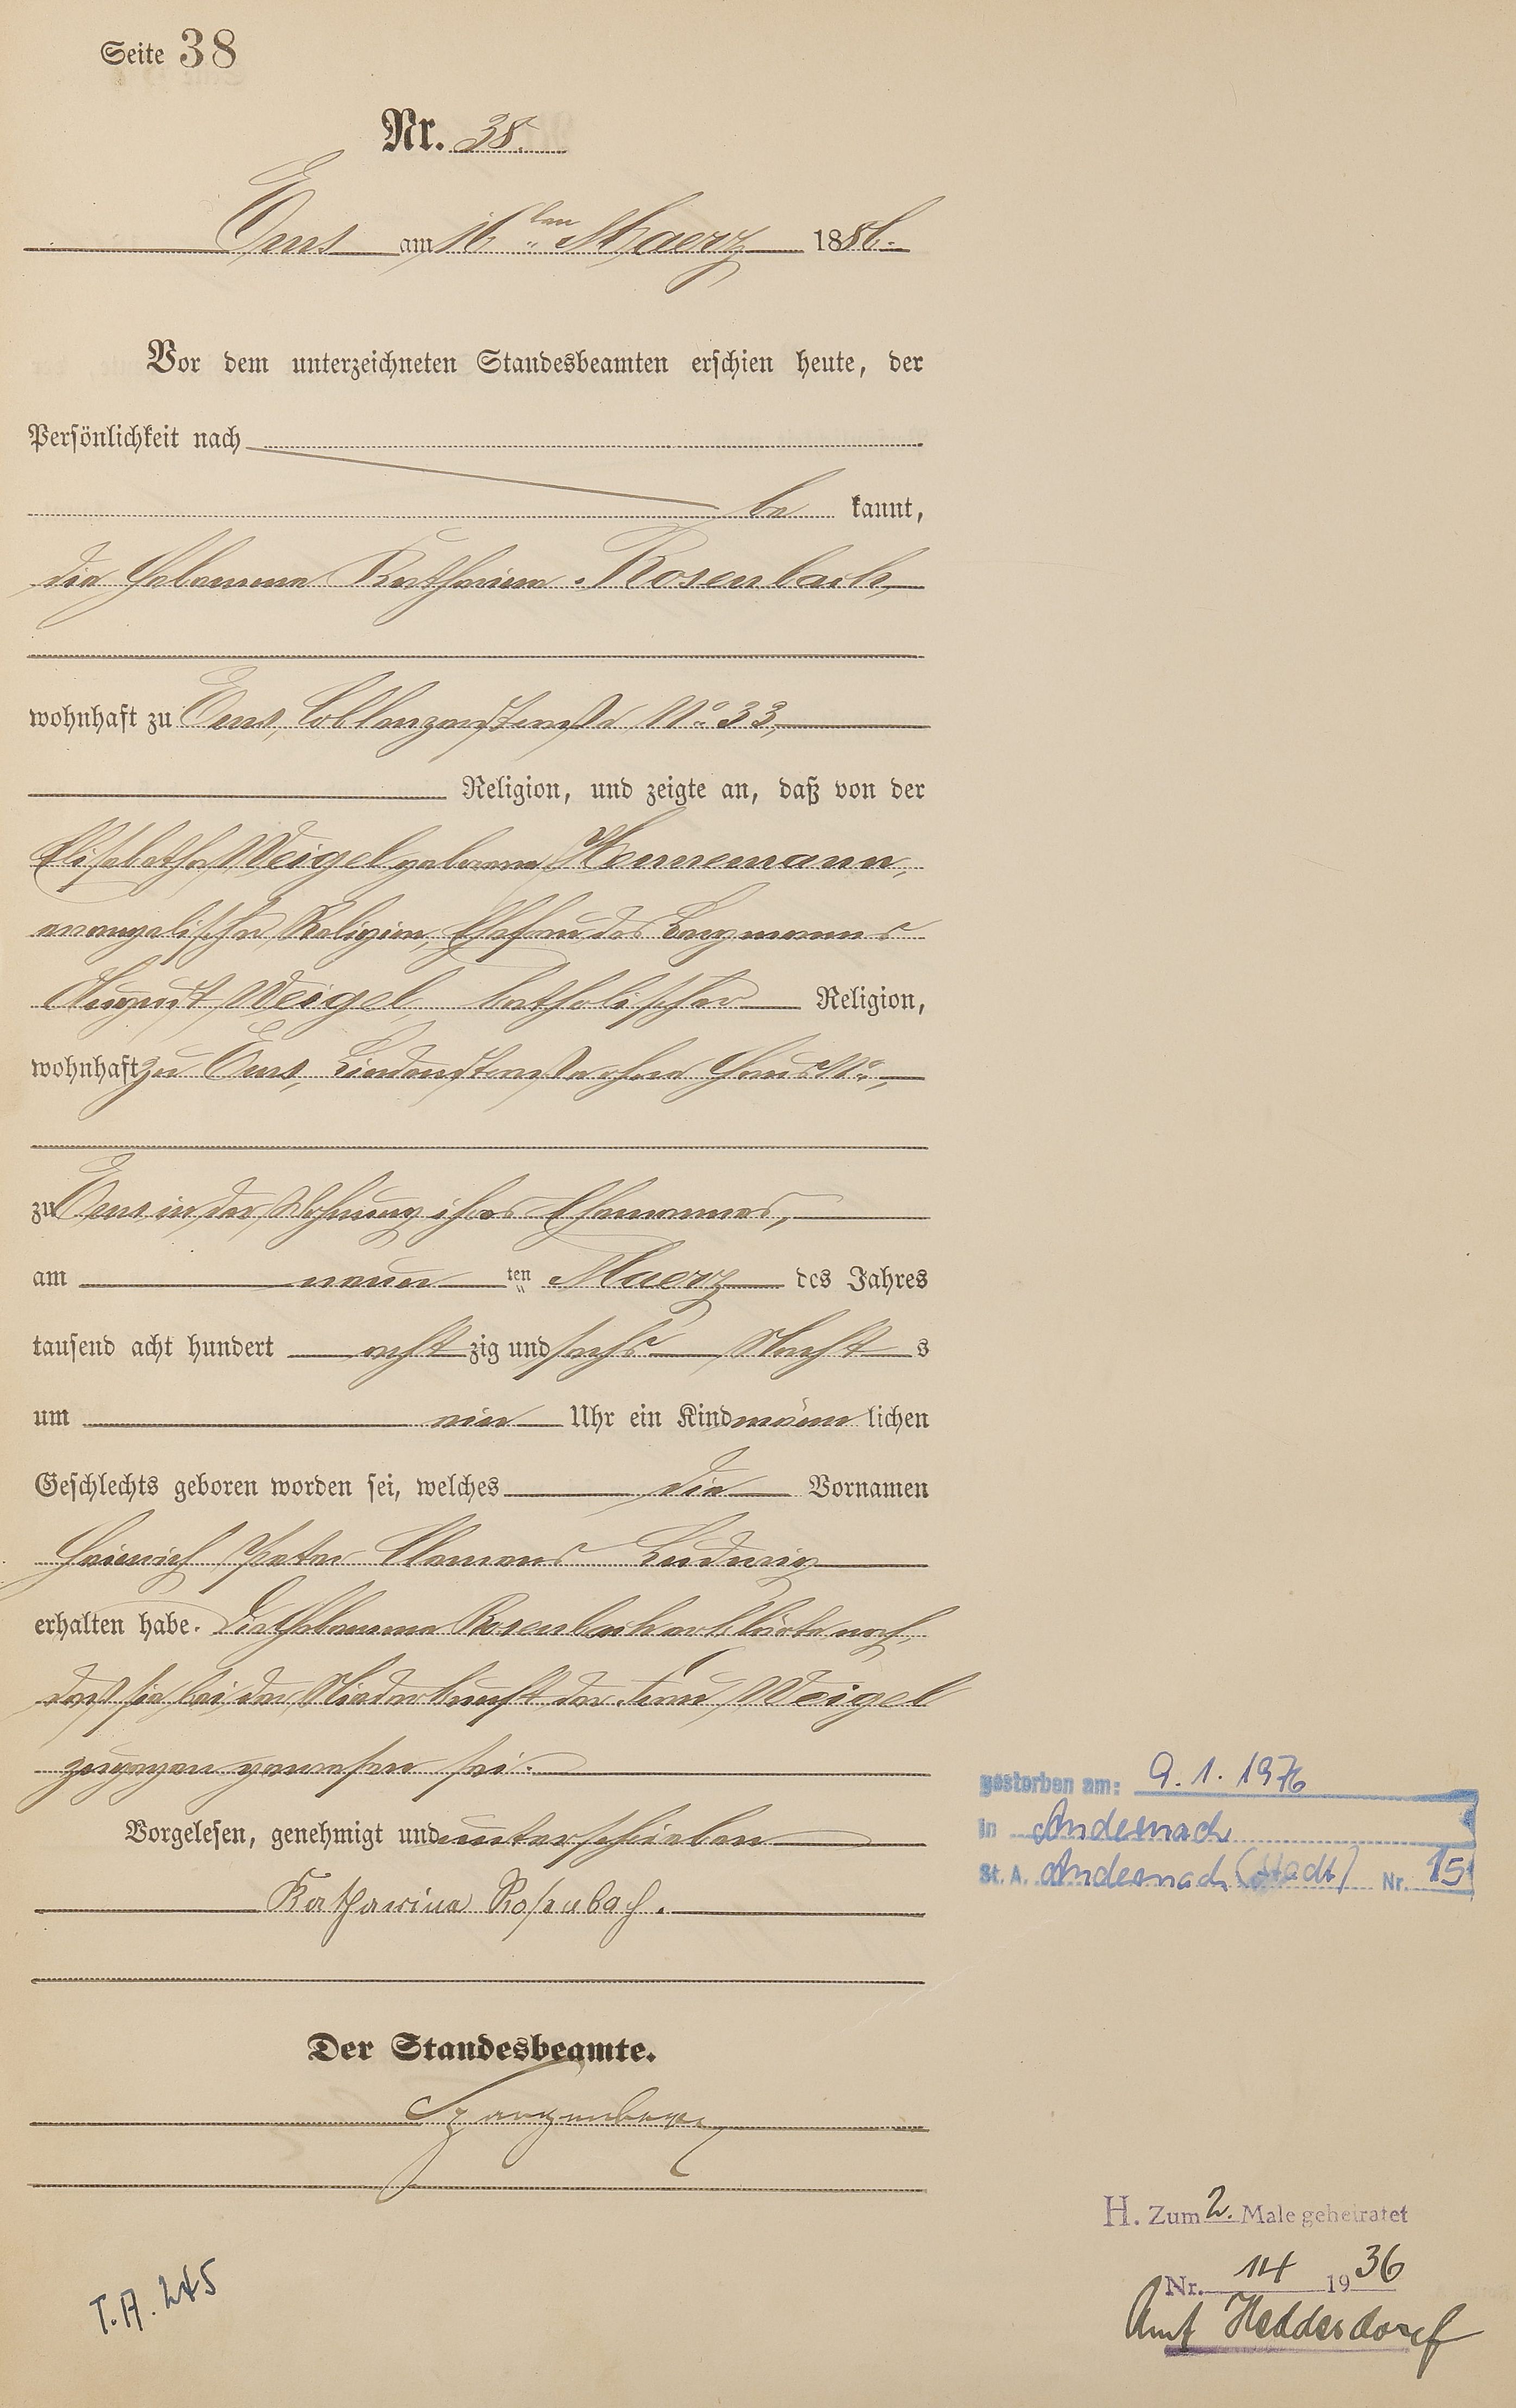 Seite 38
Nr. 38.
Ems am 16ten Maerz 1886.
Vor dem unterzeichneten Standesbeamten erschien heute, der
Persönlichkeit nach
be kannt,
die Hebamme Katharina Rosenbach,
wohnhaft zu Ems, Coblenzerstraße No. 33,
Religion, und zeigte an, daß von der
Elisabetha Weigel geborene Hennemann,
evangelischer Religion, Ehefrau des Bergmanns
August Weigel, katholischer Religion,
wohnhaft zu Ems, Lindenstraße ohne Haus No.,
zu Ems in der Wohnung ihres Ehemannes,
am neun ten Maerz des Jahres
tausend acht hundert acht zig und sechs Nacht s
um ein Uhr ein Kind männ lichen
Geschlechts geboren worden sei, welches die Vornamen
Heinrich Peter Clemens Ludwig
erhalten habe. Die Hebamme Rosenbach erklärte noch,
daß sie bei der Niederkunft der Frau Weigel
zugegen gewesen sei.
Vorgelesen, genehmigt und unterschrieben
Katharina Rosenbach.
Der Standesbeamte.
Spangenberg
gestorben am: 9.1.1976
in Andernach
St. A. Andernach (Stadt) Nr. 15
H. Zum 2. Male geheiratet
Nr. 14 1936
Amt Heddesdorf
T.A. 245